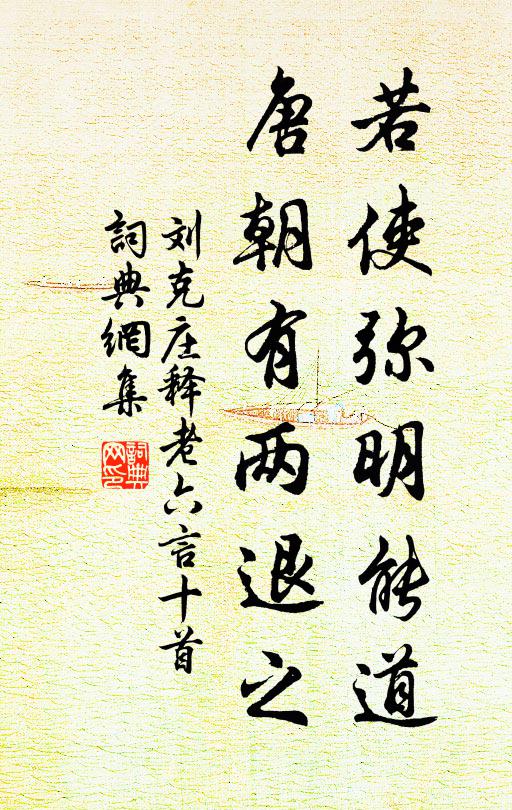 若使弥明能道
唐朝有两退之
刘克庄释老六言十首
詞典網集
詞典网印